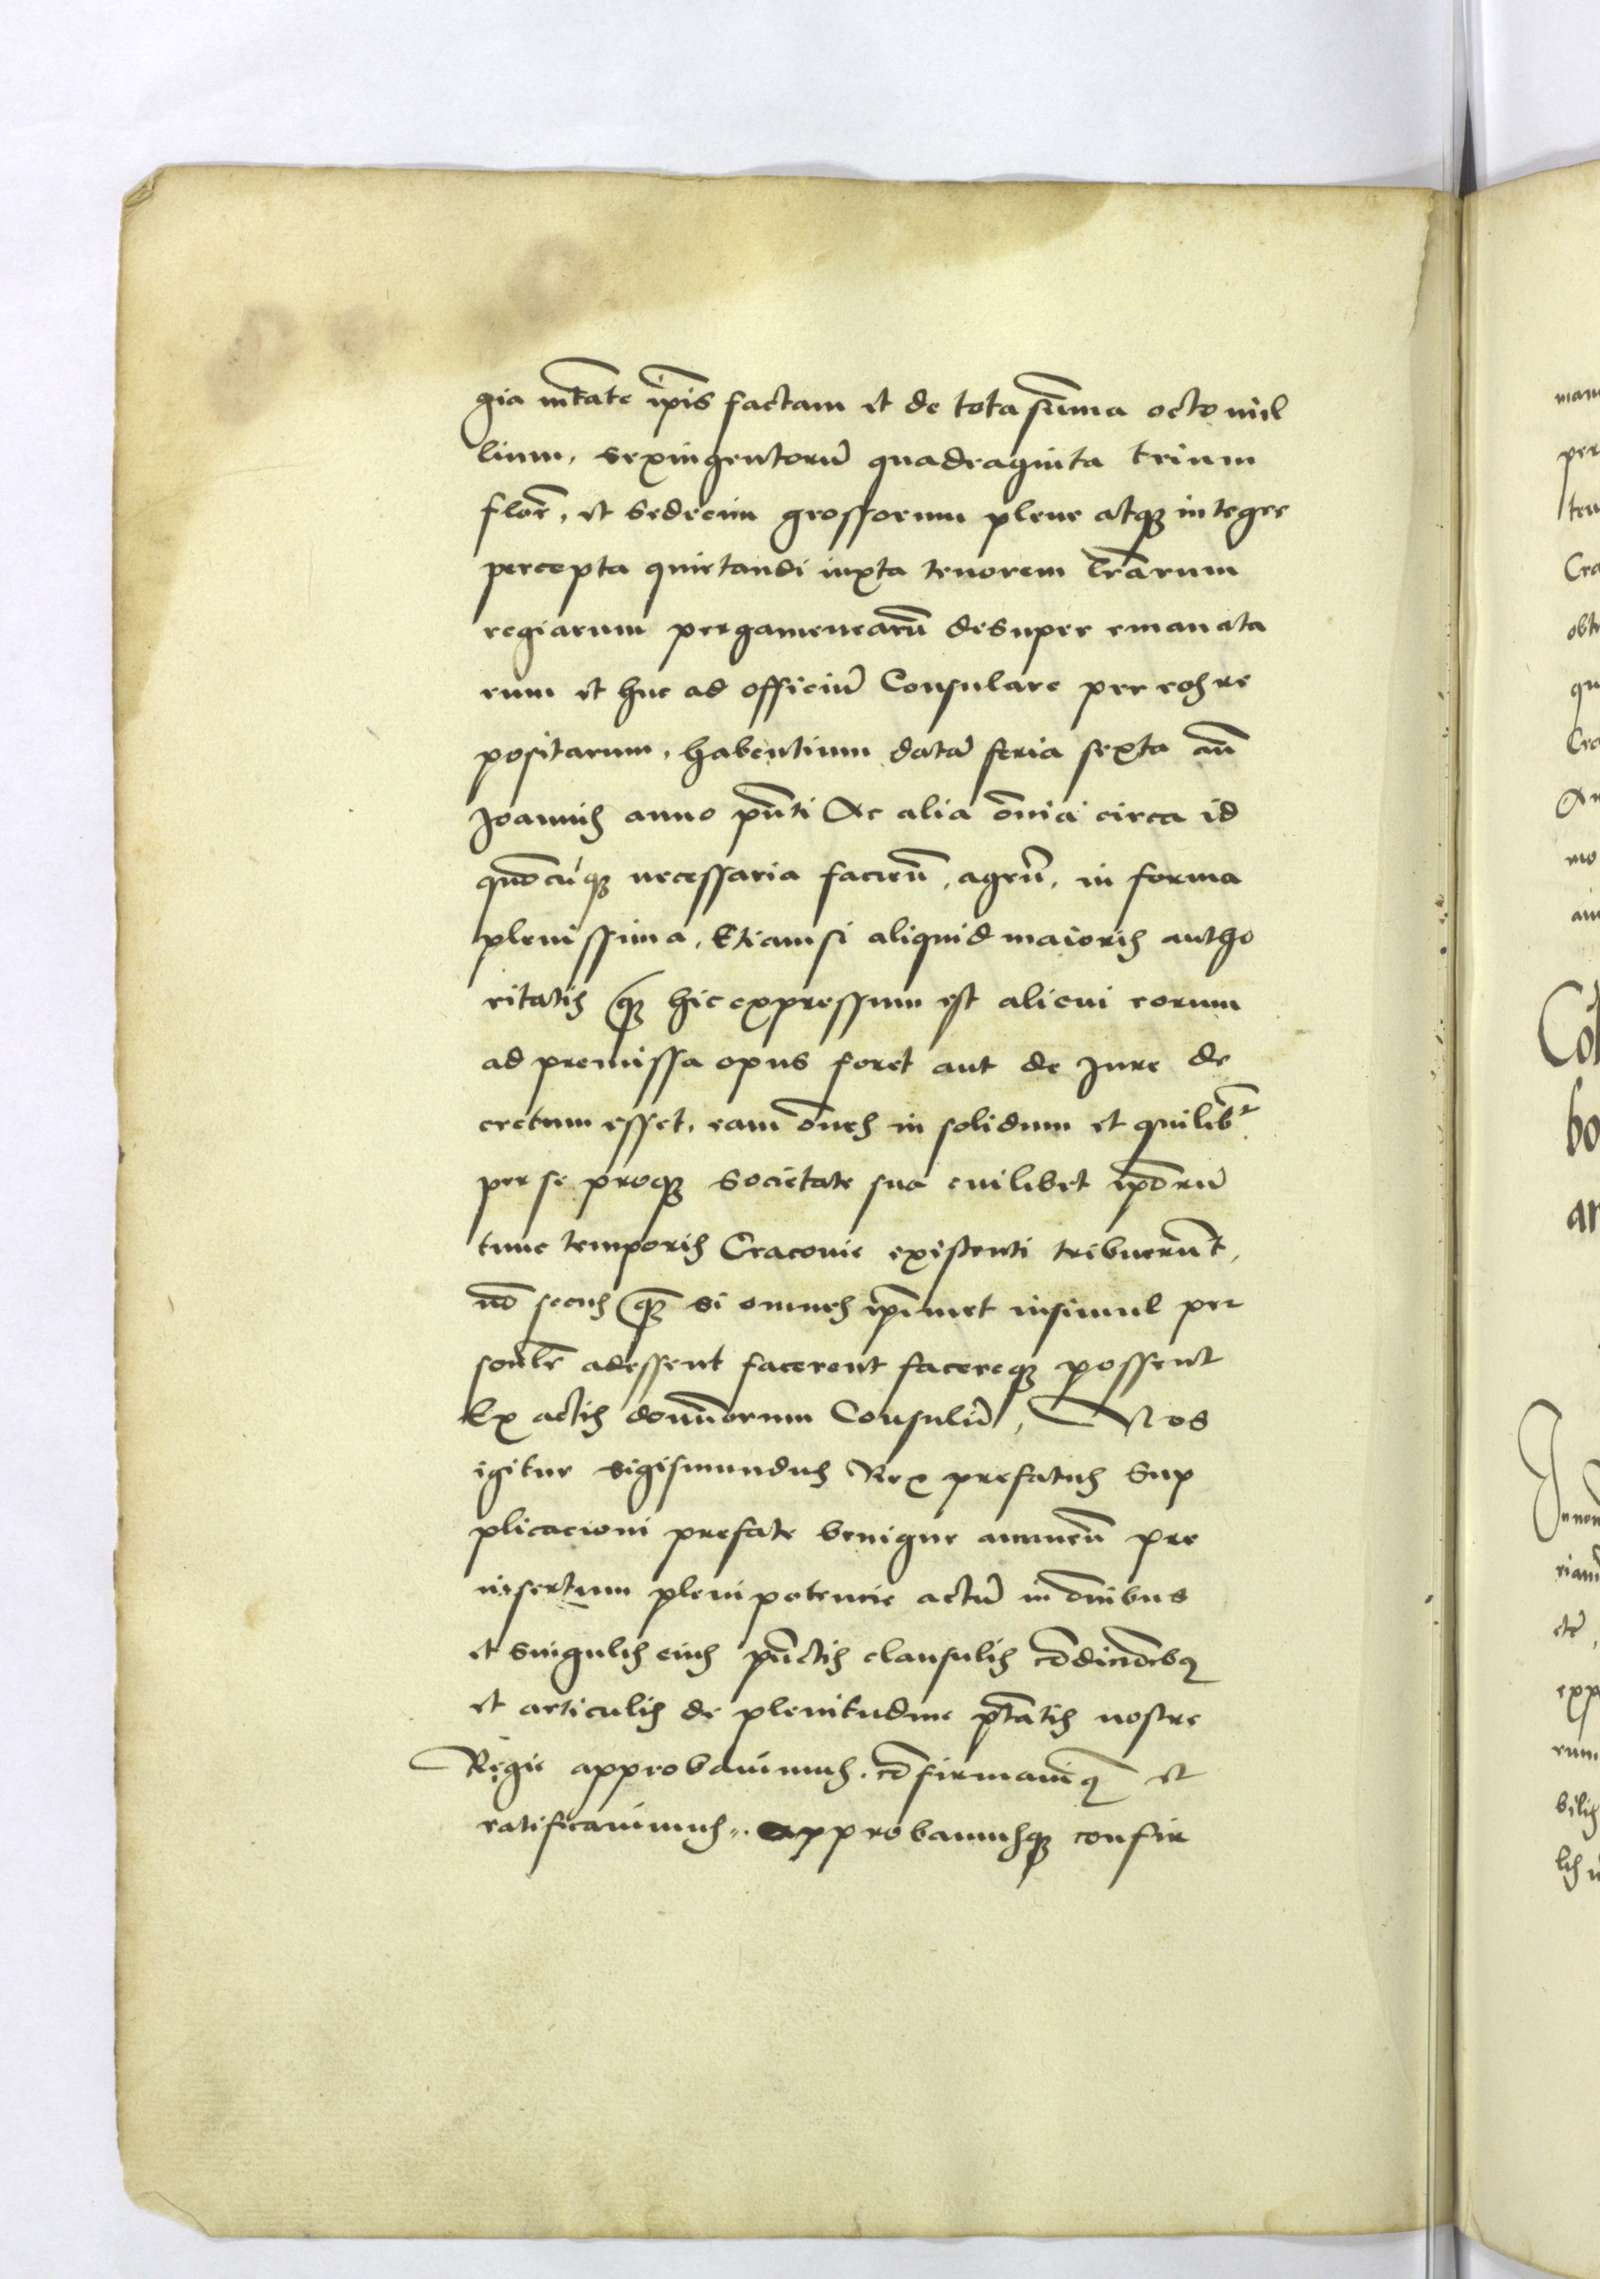 gia mtate ip̄is factam et de tota sum̄a octo mil
lium, sexingentorū quadraginta trium
florē, et sedecim grossorum plene atq̨ integre
percepta quietandi iuxta tenorem lrārum
regiarum pergamenearū desuper emanata
rum et huc ad officiū Consulare per eos re
positarum, habentium datā feria sexta an̄
Joannis anno pn̄ti Ac alia om̄ia circa id
quōcūq̨ necessaria facien̄, agen̄, in forma
plenissima, Etiamsi aliquid maioris autho
ritatis q̨ hic expressum est alicui eorum
ad premissa opus foret aut de Jure de
cretum esset, eam om̄es in solidum et quilibꝫ
per se proq̨ societate sua cuilibet ip̄orū
tunc temporis Cracovie existenti tribuerūt,
nō secus q̨̄ si omnes ip̄imet insimul per
sonlr̄ adessent facerent facereq̨ possent
Ex actis domin̄orum Consulū, Nos
igitur Sigismundus Rex prefatus Sup
plicacioni prefate benigne annuen̄ pre
insertum plenipotencie actū in om̄ibus
et singulis eius pūctis clausulis cōdiciōibꝫ
et articulis de plenitudine ptātis nostre
Regie approbavimus. cōfirmavimꝰ et
ratificavimus, approbamusq̨ confir
mam
per
ten
Cra
obt
qu
Cra
An
mo
Cōt
bo
ar
riam̄
etē,
exp
rum
bilis
lis